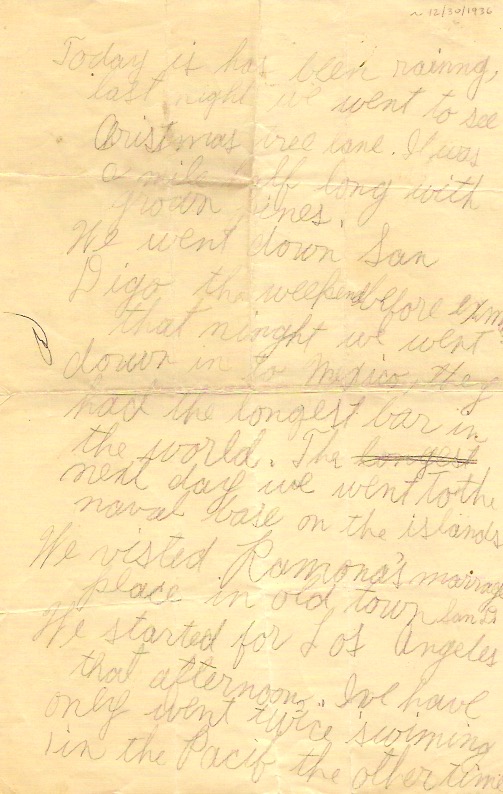 ~ 12/30/1936
Today is has been rainng,
last night we went to see
Cristmas tree lane. It was
a mile half long with
pines.
We went down San
Digo the weekend before xmas
that ninght we went
down in to Mexico, they
had the longest bar in
the world. The longest
next day we went to the
naval base on the islands
We visted Ramona's marrage
place in old town
We started for Los Angeles
that afternoon. Ive have
only went twice swiming
in the Pacif the other time